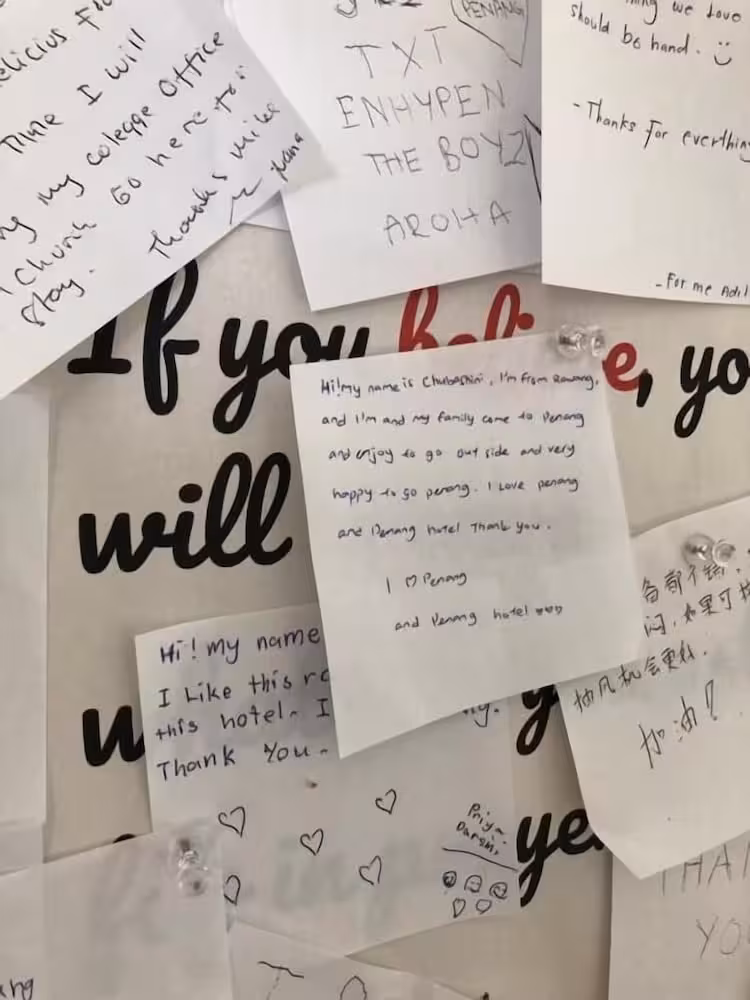 elicius
Time I will
my colegge Office
Church Go here
Stay. Thanks
PENANG
TXT
ENHYPEN
THE BOYZ
AROHA
we love
should be hand.
-Thanks For everthing
-For me Adil
If you beli e, yo
will
Hi! my name is Chubashini, I'm from Rawang,
and I'm and my family come to Penang
and enjoy to go out side and very
happy to go penang. I Love penang
and Penang hotel Thank you.
I ♡ Penang
and Penang hotel ♡♡♡
Hi! my name
I Like this ro
this hotel- I
Thank You-
Priya
Darshi
备都不错,
闷,如果可
抽风机会更好.
加油!
w y
ye
THAN
YO
ang